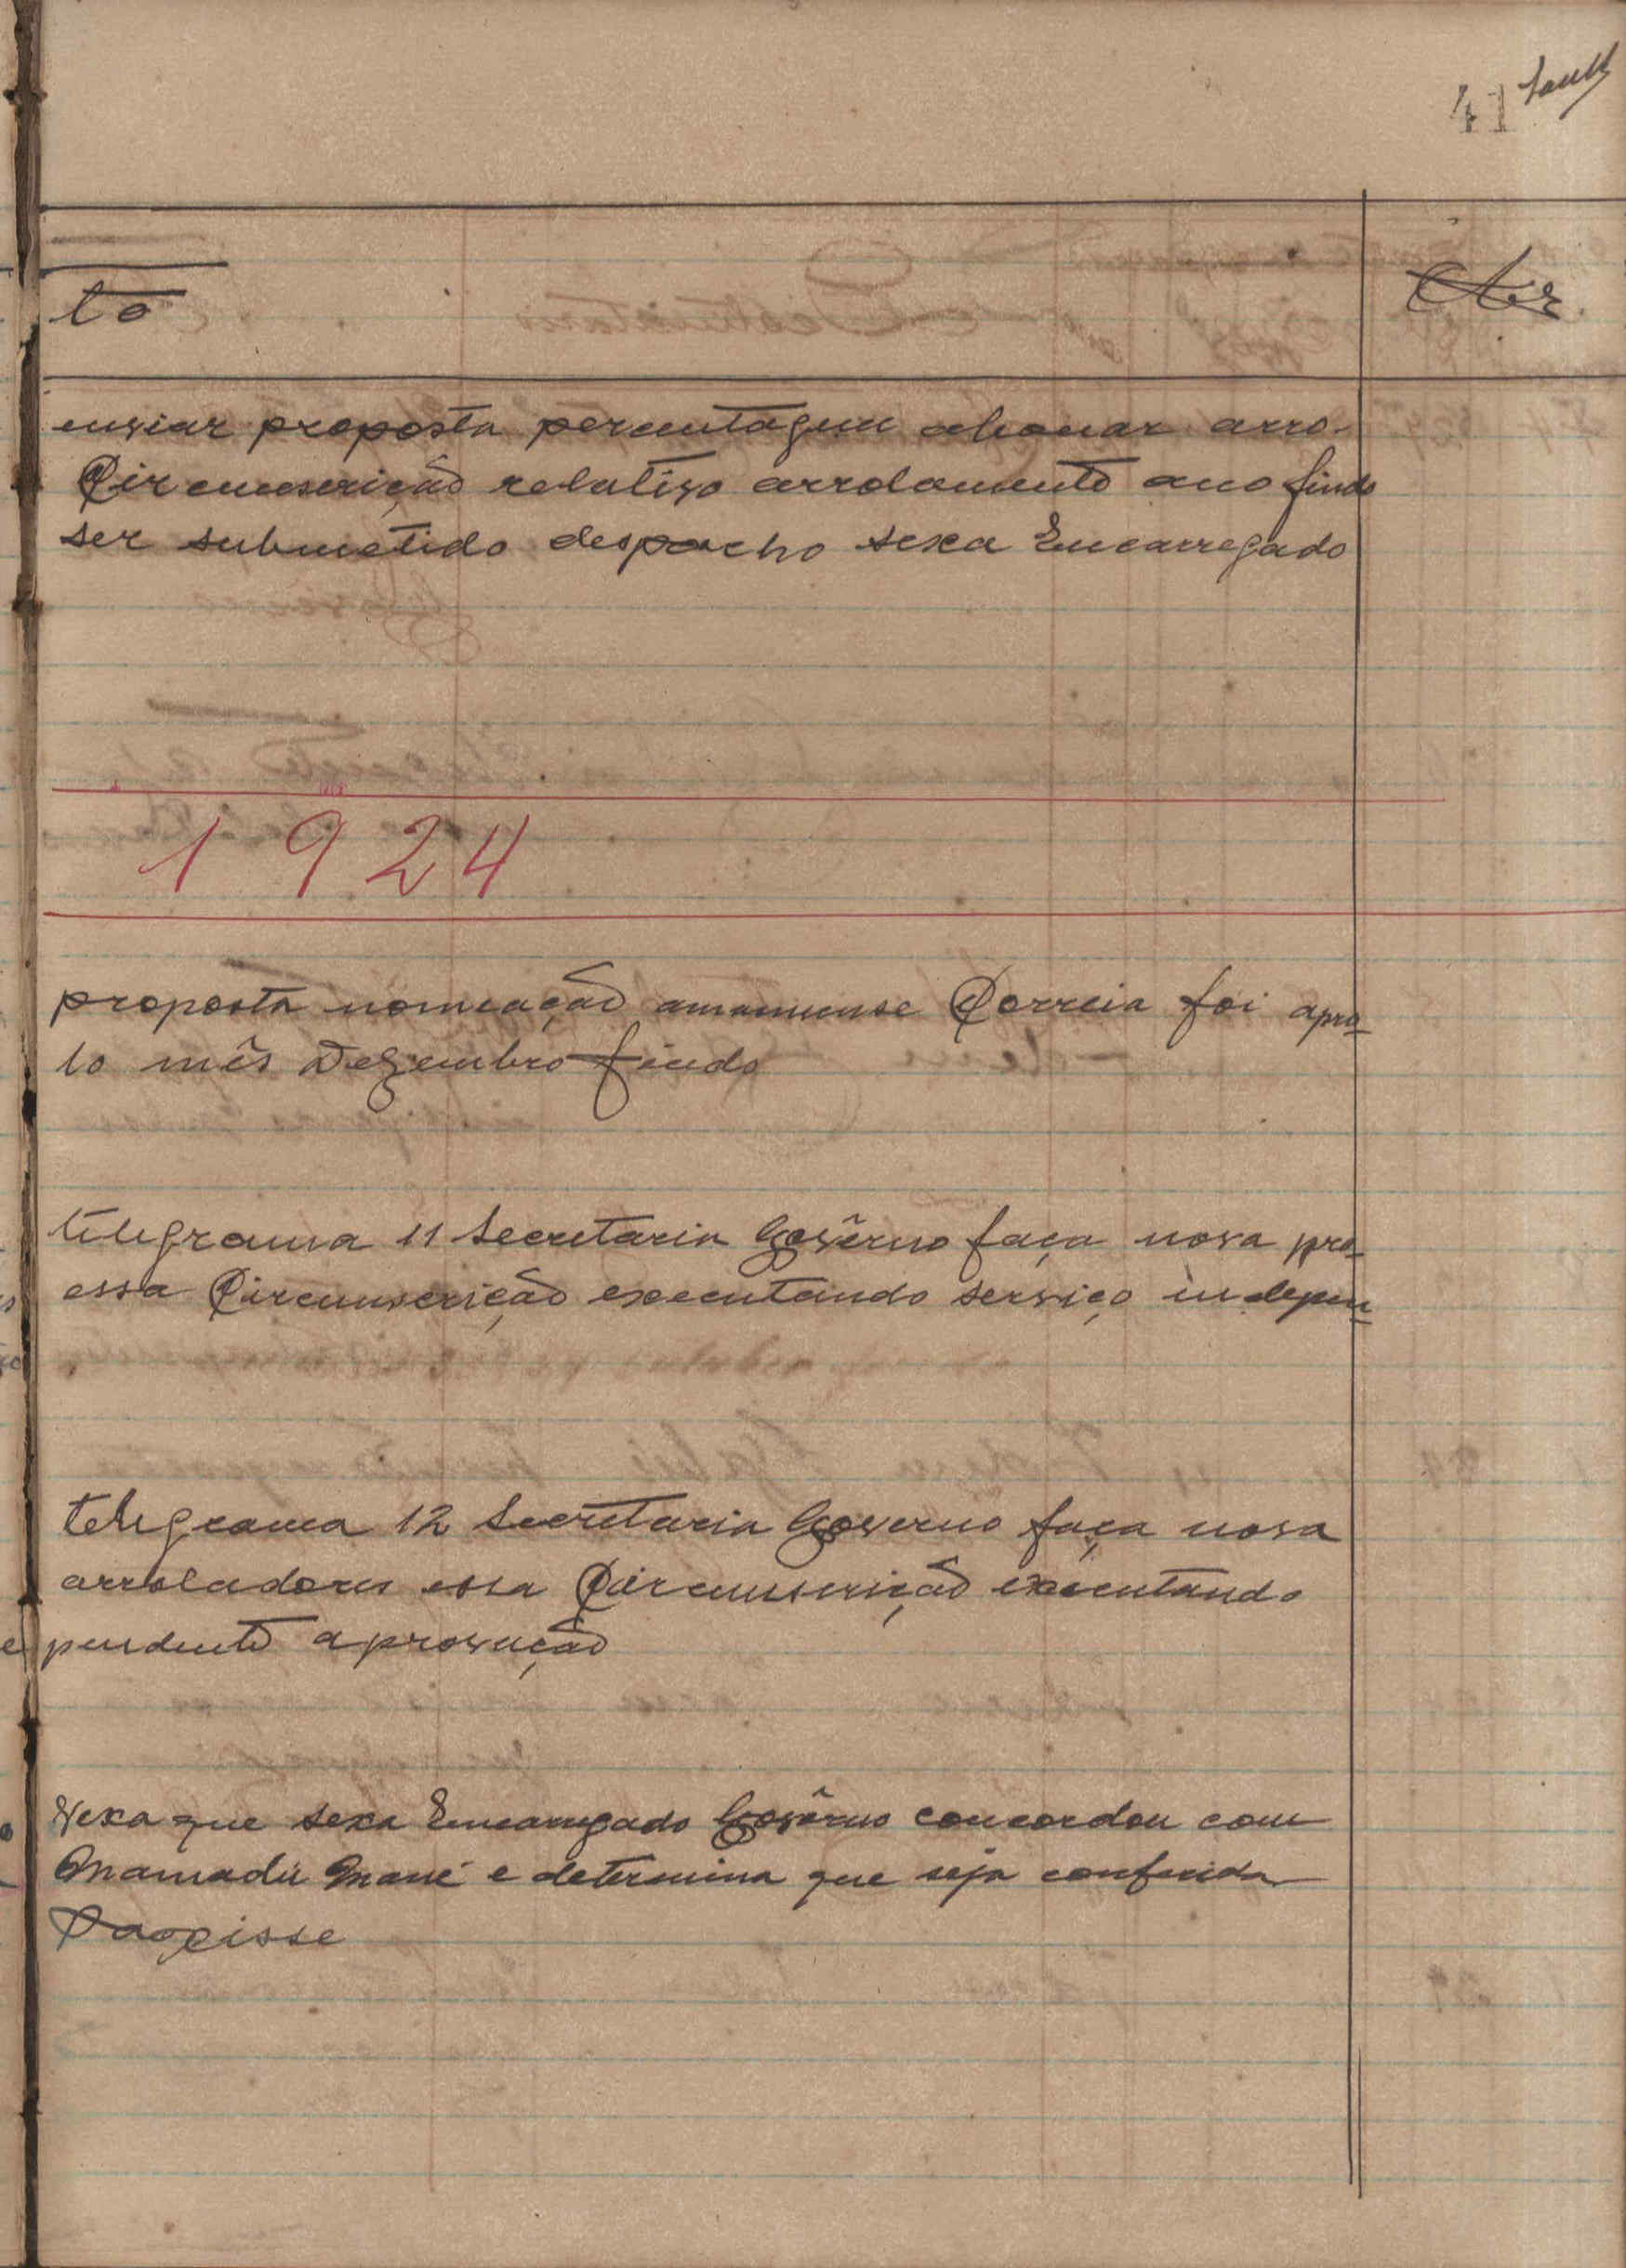 41
to
enviar proposta percentagem abonar arro-
Circunscrição relativo arrolamento ano findo
ser submetido despacho sexa Encarregado
1924
proposta nomeação amanuense Correia foi apro-
to mês Dezembro findo
telegrama 11 Secretaria Govêrno faça nova pro-
essa Circunscrição executando serviço indepen-
telegrama 12 Secretaria Governo faça nova
arroladores essa Circunscrição executando
pendente aprovação
Vexa que sexa Encarregado Govêrno concordou com
Mamadú Mané e determina que seja conferida